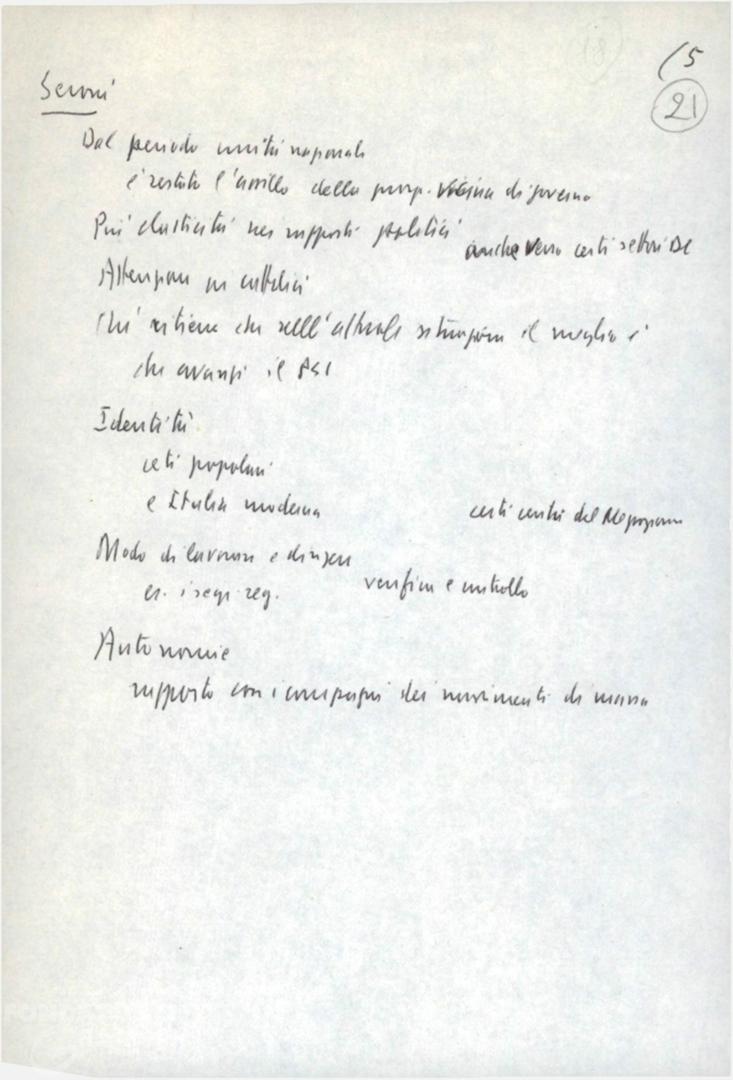 (18)
15
21
Seroni
Dal periodo unità nazionale
è restato l'assillo della prosp. vicina di governo
Più elasticità nei rapporti politici
anche verso certi settori DC
Attenzione ai cattolici
Chi ritiene che nell'attuale situazione il meglio è
che avanzi il PSI
Identità
ceti popolari
e Italia moderna
certi centri del Mezzogiorno
Modo di lavorare e dirigere
es. i segr. reg.
verifica e controllo
Autonomie
rapporto con i compagni dei movimenti di massa